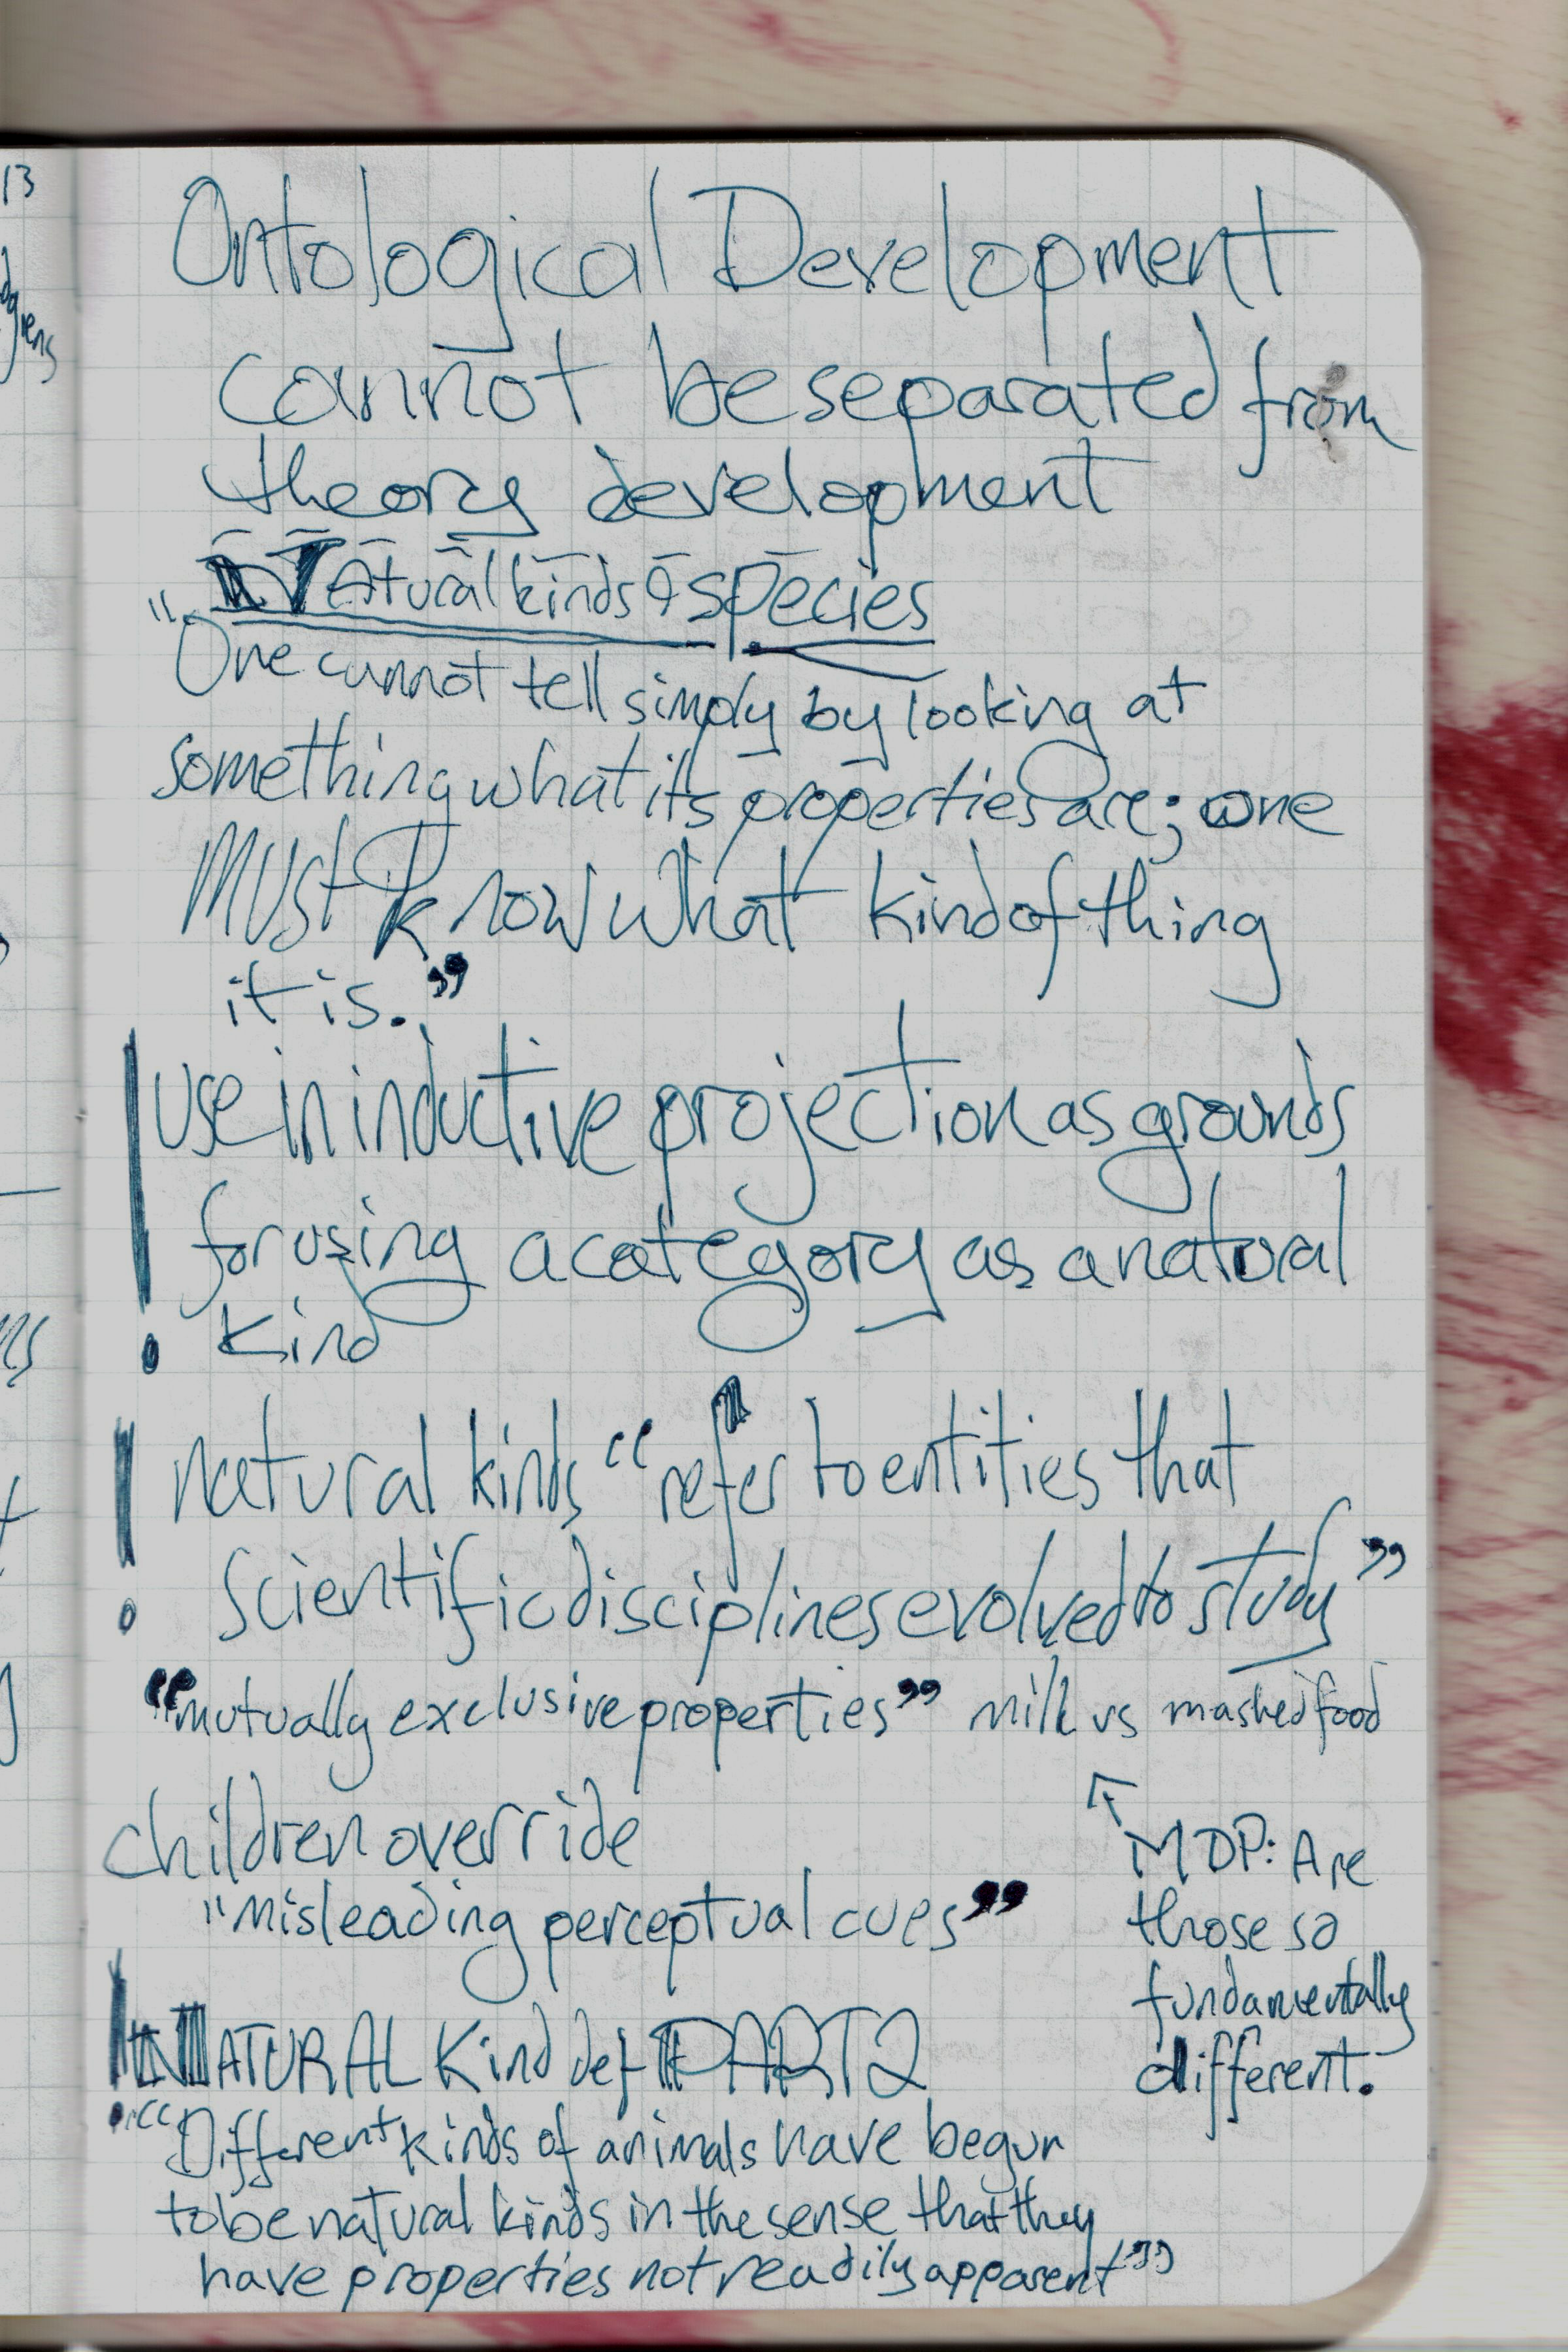 13
Ontological Development
cannot be separated from
theory development
Natural kinds & species
"One cannot tell simply by looking at
something what its properties are; one
MUST know what kind of thing
it is."
! use in inductive projection as grounds
for using a category as a natural
kind
! natural kinds "refer to entities that
scientific disciplines evolved to study"
"mutually exclusive properties" milk vs mashed food
↖ MDP: Are
those so
fundamentally
different.
children override
"misleading perceptual cues"
! NATURAL Kind def PART 2
"Different kinds of animals have begun
to be natural kinds in the sense that they
have properties not readily apparent"